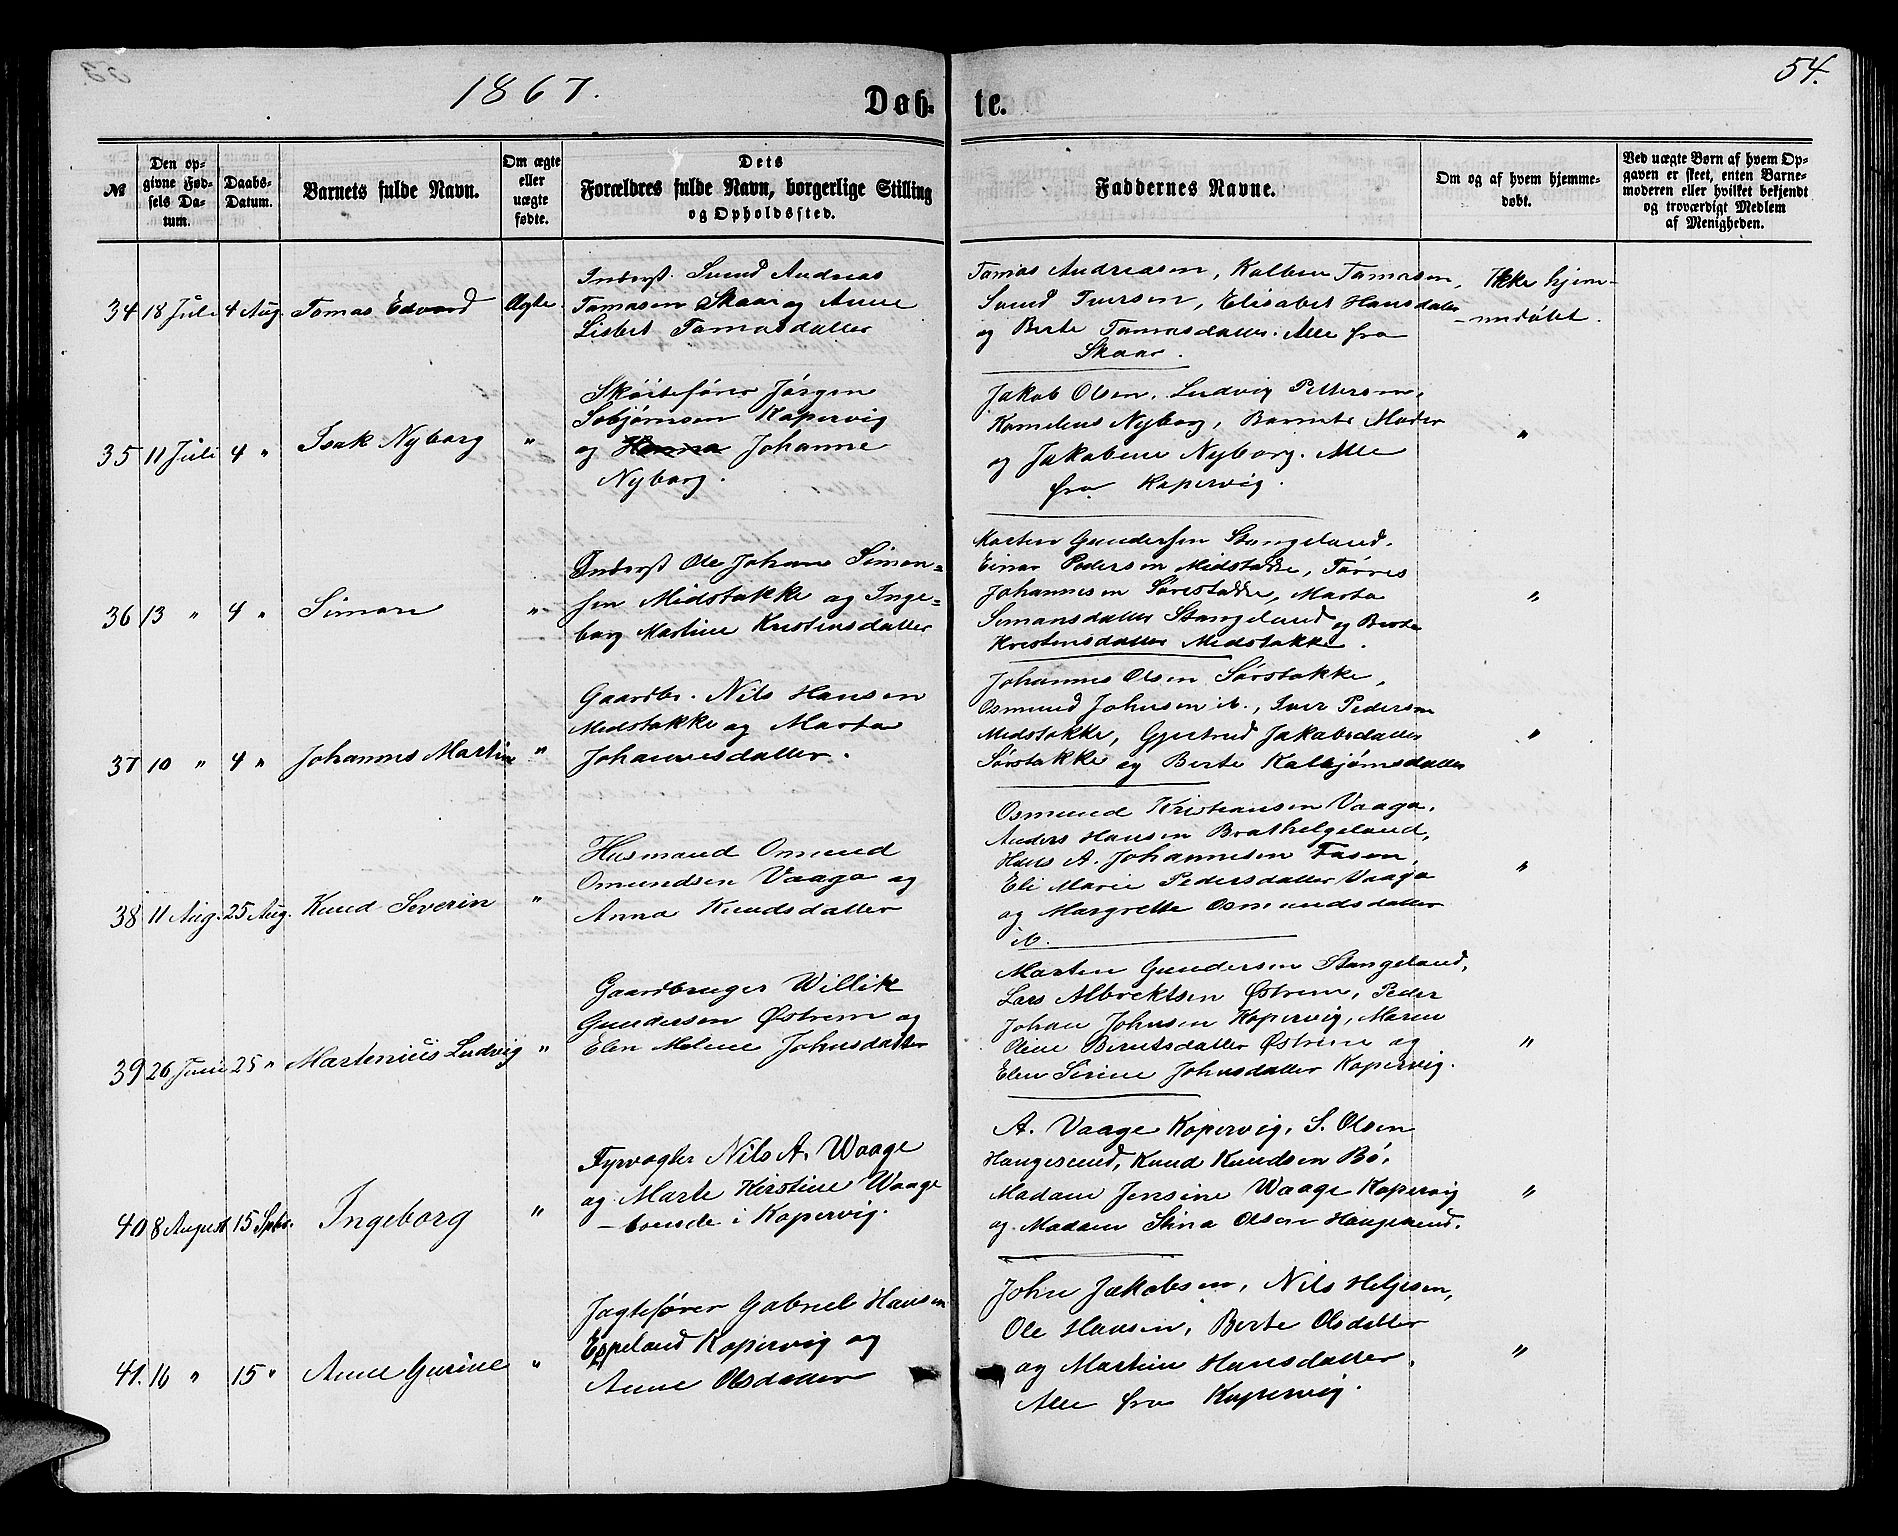 1867.
Døb-
te.
54.
№
Den op-
givne Fød-
sels Da-
tum.
Daabs-
Datum.
Barnets fulde Navn.
Om ægte
eller
uægte
fødte.
Dets
Forældres fulde Navn, borgerlige Stilling
og Opholdssted.
Faddernes Navne.
Om og af hvem hjemme-
døbt.
Ved uægte Børn af hvem Op-
gaven er skeet, enten Barne-
moderen eller hvilket bekjendt
og troværdigt Medlem
af Menigheden.
34 18 Juli 4 Aug. Tomas Edvard Ægte.
Inderst. Svend Andreas
Tomasen Skaar og Anne
Lisbet Tomasdatter
Tomas Andreasen, Kolben Tomasen,
Svend Iversen, Elisabet Hansdatter
og Berte Tomasdatter. Alle fra
Skaar.
Ikke hjem-
-mdøbt.
35 11 Juli 4 " Isak Nyborg "
Skøitefører Jørgen
Sebjørnsen Kopervig
og Johanne
Nyborg.
Jakob Olsen, Ludvig Pettersen,
Kornelius Nyborg, Barnets Moder
og Jakobine Nyborg. Alle
fra Kopervig.
"
36 13 " 4 " Simon "
Inderst Ole Johan Simon-
sen Midstokke og Inge-
borg Martine Kristensdatter
Morten Gundersen Stangeland,
Einar Pedersen Midstokke, Tørres
Johannesen Sørstokke, Marta
Simonsdatter Stangeland og Berta
Kristensdatter Midstokke.
"
37 10 " 4 " Johannes Martin "
Gaardbr. Nils Hansen
Midstokke og Marta
Johannesdatter.
Johannes Olsen Sørstokke,
Osmund Johnsen ib., Iver Pedersen
Midstokke, Gjertrud Jakobsdatter
Sørstokke og Berte Kolbjørnsdatter
"
38 11 Aug. 25 Aug. Knud Severin "
Husmand Osmund
Omundsen Vaaga og
Anna Knudsdatter
Osmund Kristiansen Vaaga,
Anders Hansen Brathelgeland,
Hans A. Johannesen Fosen,
Eli Marie Pedersdatter Vaaga
og Margrette Osmundsdatter
ib.
"
39 26 Juni 25 " Martenius Ludvig "
Gaardbruger Willik
Gundersen Østrem og
Elen Malene Johnsdatter
Morten Gundersen Stangeland,
Lars Albrektsen Østrem, Peder
Johan Johnsen Kopervig, Maren
Oline Berntsdatter Østrem og
Elen Serine Johnsdatter Kopervig.
"
40 8 August 15 Septbr. Ingeborg "
Fyrvogter Nils A. Waage
og Marte Kirstine Waage
- boende i Kopervig.
A. Vaage Kopervig, S. Olsen
Haugesund, Knud Knudsen Bø,
Madam Jensine Waage Kopervig
og Madam Stina Olsen Haugesund.
"
41. 16 " 15 " Anne Gurine "
Jagtefører Gabriel Hansen
Eppeland Kopervig og
Anne Olsdatter
John Jakobsen, Nils Helgesen,
Ole Hansen, Berte Olsdatter
og Martine Hansdatter,
Alle fra Kopervig.
"